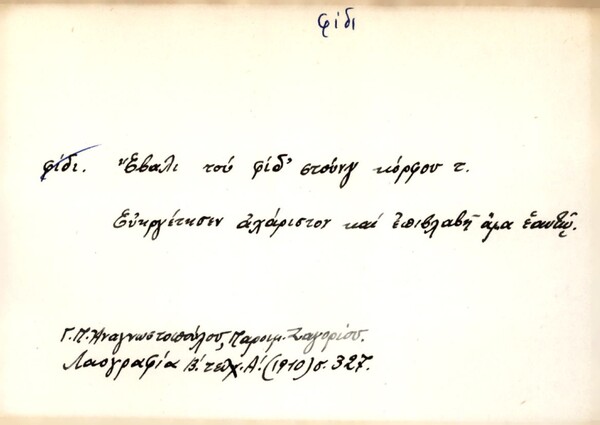 φίδι
φίδι. Ἔβαλι τοὺ φίδ' στοὺνγ κόρφου τ.
Εὐηργέτησεν ἀχάριστον καί ἐπιβλαβῆ ἅμα ἑαυτῷ.
Γ. Π. Ἀναγνωστοπούλου, Παροιμ. Ζαγορίου.
Λαογραφία Β΄. τεῦχ. Α΄. (1910) σ. 327.